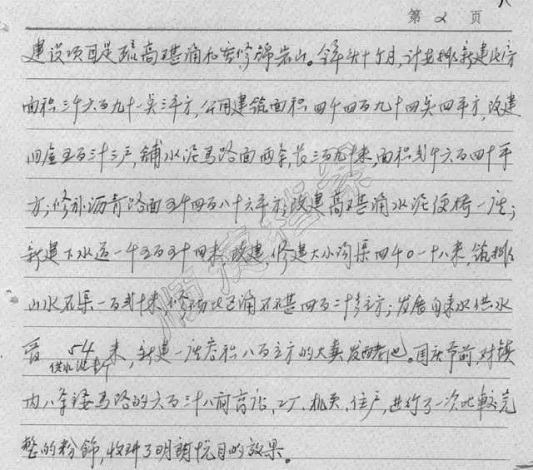 第 2 页
建设项目是 高 涌和 修锦岩山。今年头十个月,计 新建住房
面积三千六百九十一点三平方,公用建筑面积四千四百九十四点四平方,改建
旧屋五百三十三户,铺水泥马路面两条,长三百 米,面积贰千六百四十平
方;修补沥青路面五千四百八十六平方;改建高 涌水泥便桥一座;
新建下水道一千五百五十四米,改建、修建大小沟渠四千〇一十八米,筑
山水石渠一百贰十米,修砌 涌石基四百二十 立方;发展自来水供水
管 54 米,新建一座容积八百立方的大粪发酵池。国庆节前,对镇
供水 
内八条 马路的六百三十八间商店、工厂、机关、住户,进行了一次比较完
整的粉饰,收到了明朗悦目的效果。